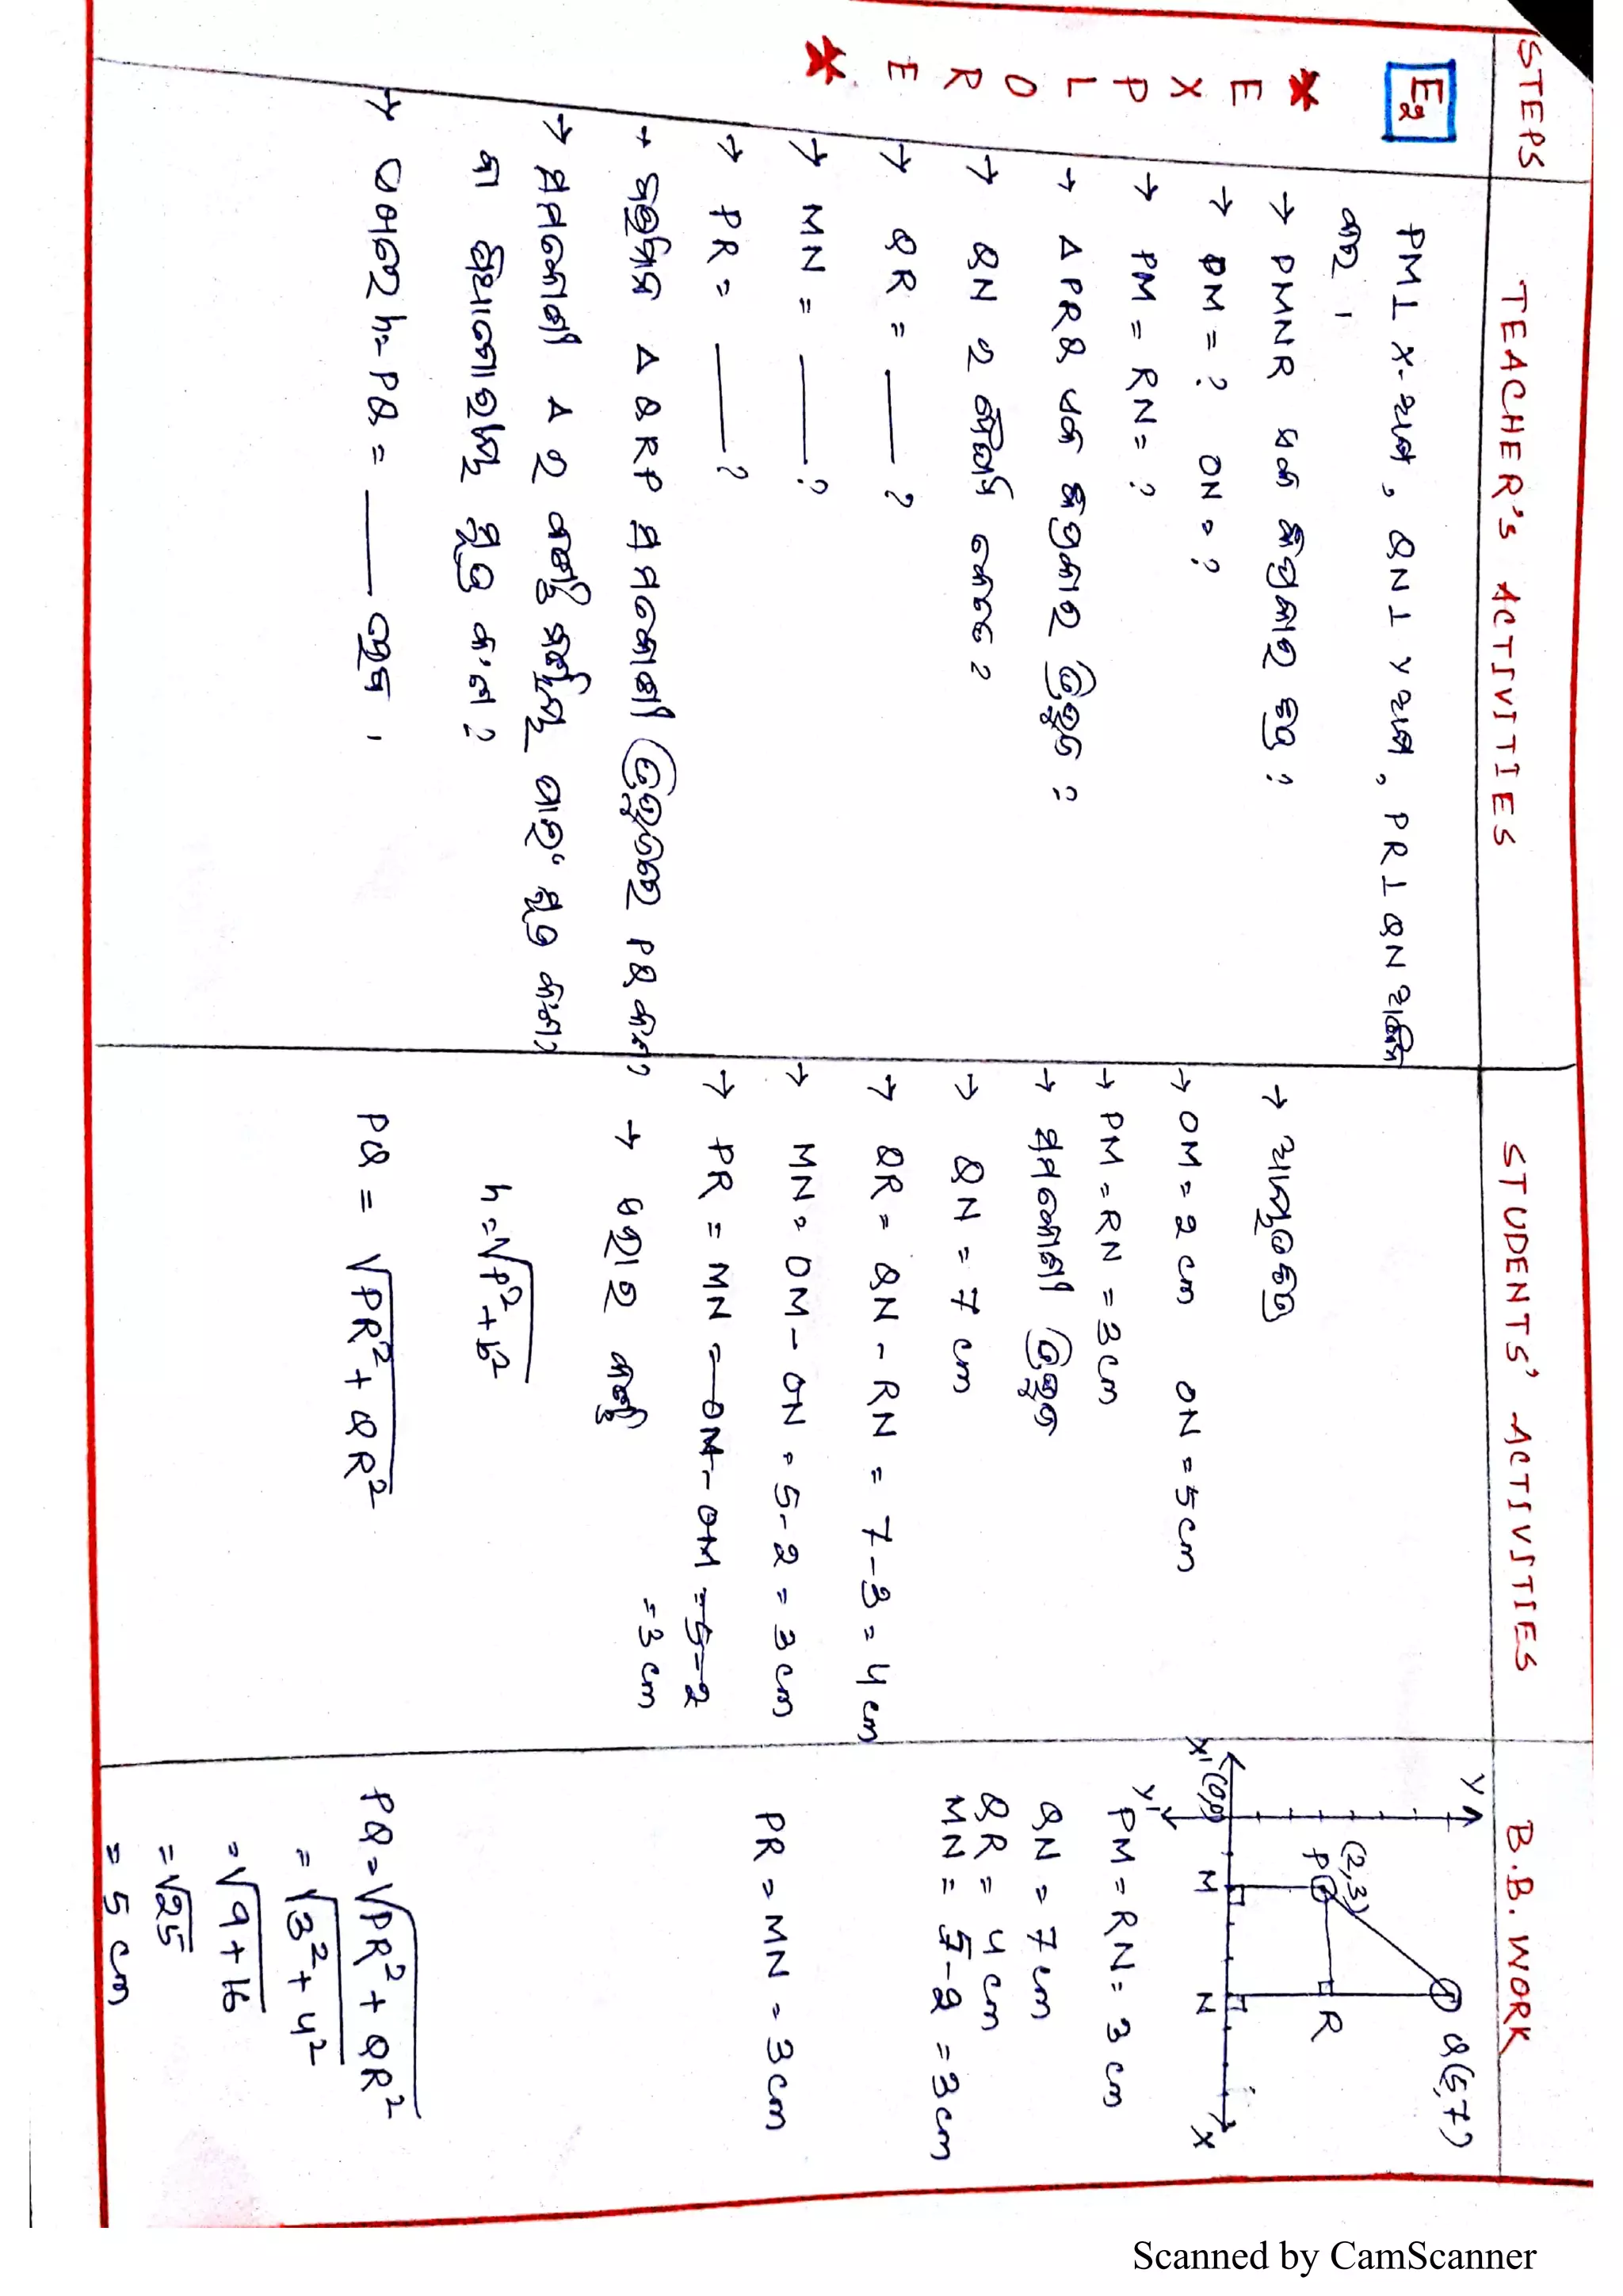 STEPS
TEACHER's ACTIVITIES
STUDENTS' ACTIVITIES
B.B. WORK
E2
* EXPLORE *
PM⊥ X-ଅକ୍ଷ, QN⊥ Y ଅକ୍ଷ, PR⊥QN
କର ।
→ PMNR ଏକ କିପ୍ରକାର
→ PM = ? ON = ?
→ PM = RN = ?
→ Δ PRQ ଏକ କିପ୍ରକାର ତ୍ରିଭୁଜ ?
→ QN ର ଦୈର୍ଘ୍ୟ କେତେ ?
→ QR = ____ ?
→ MN = ____ ?
→ PR = ____ ?
→ Δ QRP ସମକୋଣୀ ତ୍ରିଭୁଜରେ PQ କ'ଣ ?
→ ସମକୋଣୀ Δ ର କର୍ଣ୍ଣ ପାଇଁ ସୂତ୍ର କ'ଣ ?
ବା ସୂତ୍ର କ'ଣ ?
→ ଏଠାରେ h = PQ = ____ ହେବ ।
→ ଆୟତଚିତ୍ର
→ OM = 2 cm ON = 5 cm
→ PM = RN = 3 cm
→ ସମକୋଣୀ ତ୍ରିଭୁଜ
→ QN = 7 cm
→ QR = QN - RN = 7 - 3 = 4 cm
→ MN = OM - ON = 5 - 2 = 3 cm
→ PR = MN = ON - OM = 5 - 2
= 3 cm
→ ଏହାର କର୍ଣ୍ଣ
h = √p²+b²
PQ = √PR²+QR²
Y
Q(5,7)
(2,3)
P
R
X' (0,0) M N X
Y'
PM = RN = 3 cm
QN = 7 cm
QR = 4 cm
MN = 5 - 2 = 3 cm
PR = MN = 3 cm
PQ = √PR²+QR²
= √3²+4²
= √9+16
= √25
= 5 cm
Scanned by CamScanner